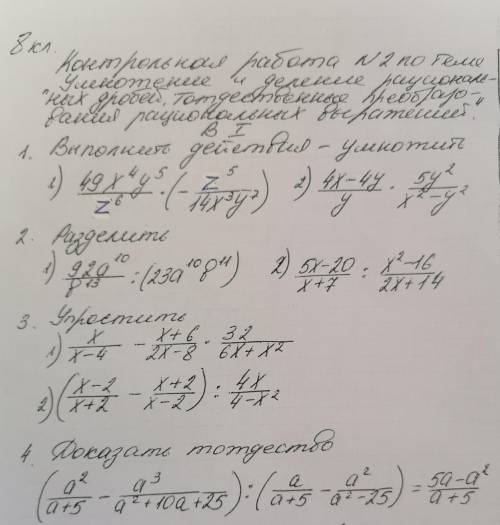 8 кл.
Контрольная работа N2 по теме
"Умножение и деление рациональ-
ных дробей, тождественные преобразо-
вания рациональных выражений."
В I
1. Выполнить действия - умножить
1) 49x⁴y⁵/z⁶ · (- z⁵/14x³y²) 2) 4x-4y/y · 5y²/x²-y²
2. Разделить
1) 92a¹⁰/b¹³ : (23a¹⁰b¹¹) 2) 5x-20/x+7 : x²-16/2x+14
3. Упростить
1) x/x-4 - x+6/2x-8 · 32/6x+x²
2) (x-2/x+2 - x+2/x-2) : 4x/4-x²
4. Доказать тождество
(a²/a+5 - a³/a²+10a+25) : (a/a+5 - a²/a²-25) = 5a-a²/a+5